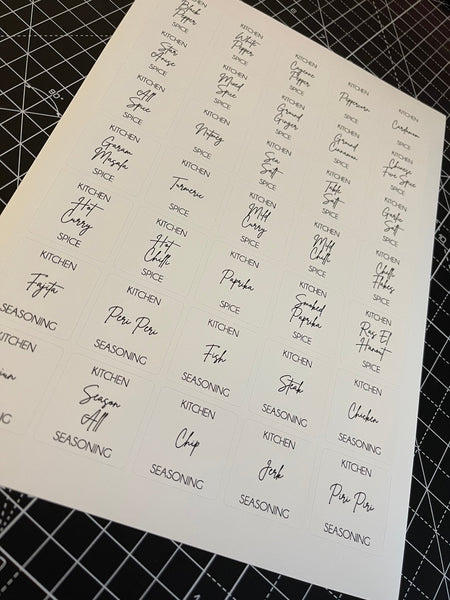 KITCHEN
Black
Pepper
SPICE
KITCHEN
White
Pepper
SPICE
KITCHEN
Cayenne
Pepper
SPICE
KITCHEN
Peppercorn
SPICE
KITCHEN
Cardamom
SPICE
KITCHEN
Star
Anise
SPICE
KITCHEN
Mixed
Spice
SPICE
KITCHEN
Ground
Ginger
SPICE
KITCHEN
Ground
Cinnamon
SPICE
KITCHEN
Chinese
Five Spice
SPICE
KITCHEN
All
Spice
SPICE
KITCHEN
Nutmeg
SPICE
KITCHEN
Sea
Salt
SPICE
KITCHEN
Table
Salt
SPICE
KITCHEN
Garlic
Salt
SPICE
KITCHEN
Garam
Masala
SPICE
KITCHEN
Turmeric
SPICE
KITCHEN
Mild
Curry
SPICE
KITCHEN
Mild
Chilli
SPICE
KITCHEN
Chilli
Flakes
SPICE
KITCHEN
Hot
Curry
SPICE
KITCHEN
Hot
Chilli
SPICE
KITCHEN
Paprika
SPICE
KITCHEN
Smoked
Paprika
SPICE
KITCHEN
Ras El
Hanout
SPICE
KITCHEN
Fajita
SEASONING
KITCHEN
Peri Peri
SEASONING
KITCHEN
Fish
SEASONING
KITCHEN
Steak
SEASONING
KITCHEN
Chicken
SEASONING
KITCHEN
Season
All
SEASONING
KITCHEN
Chip
SEASONING
KITCHEN
Jerk
SEASONING
KITCHEN
Piri Piri
SEASONING